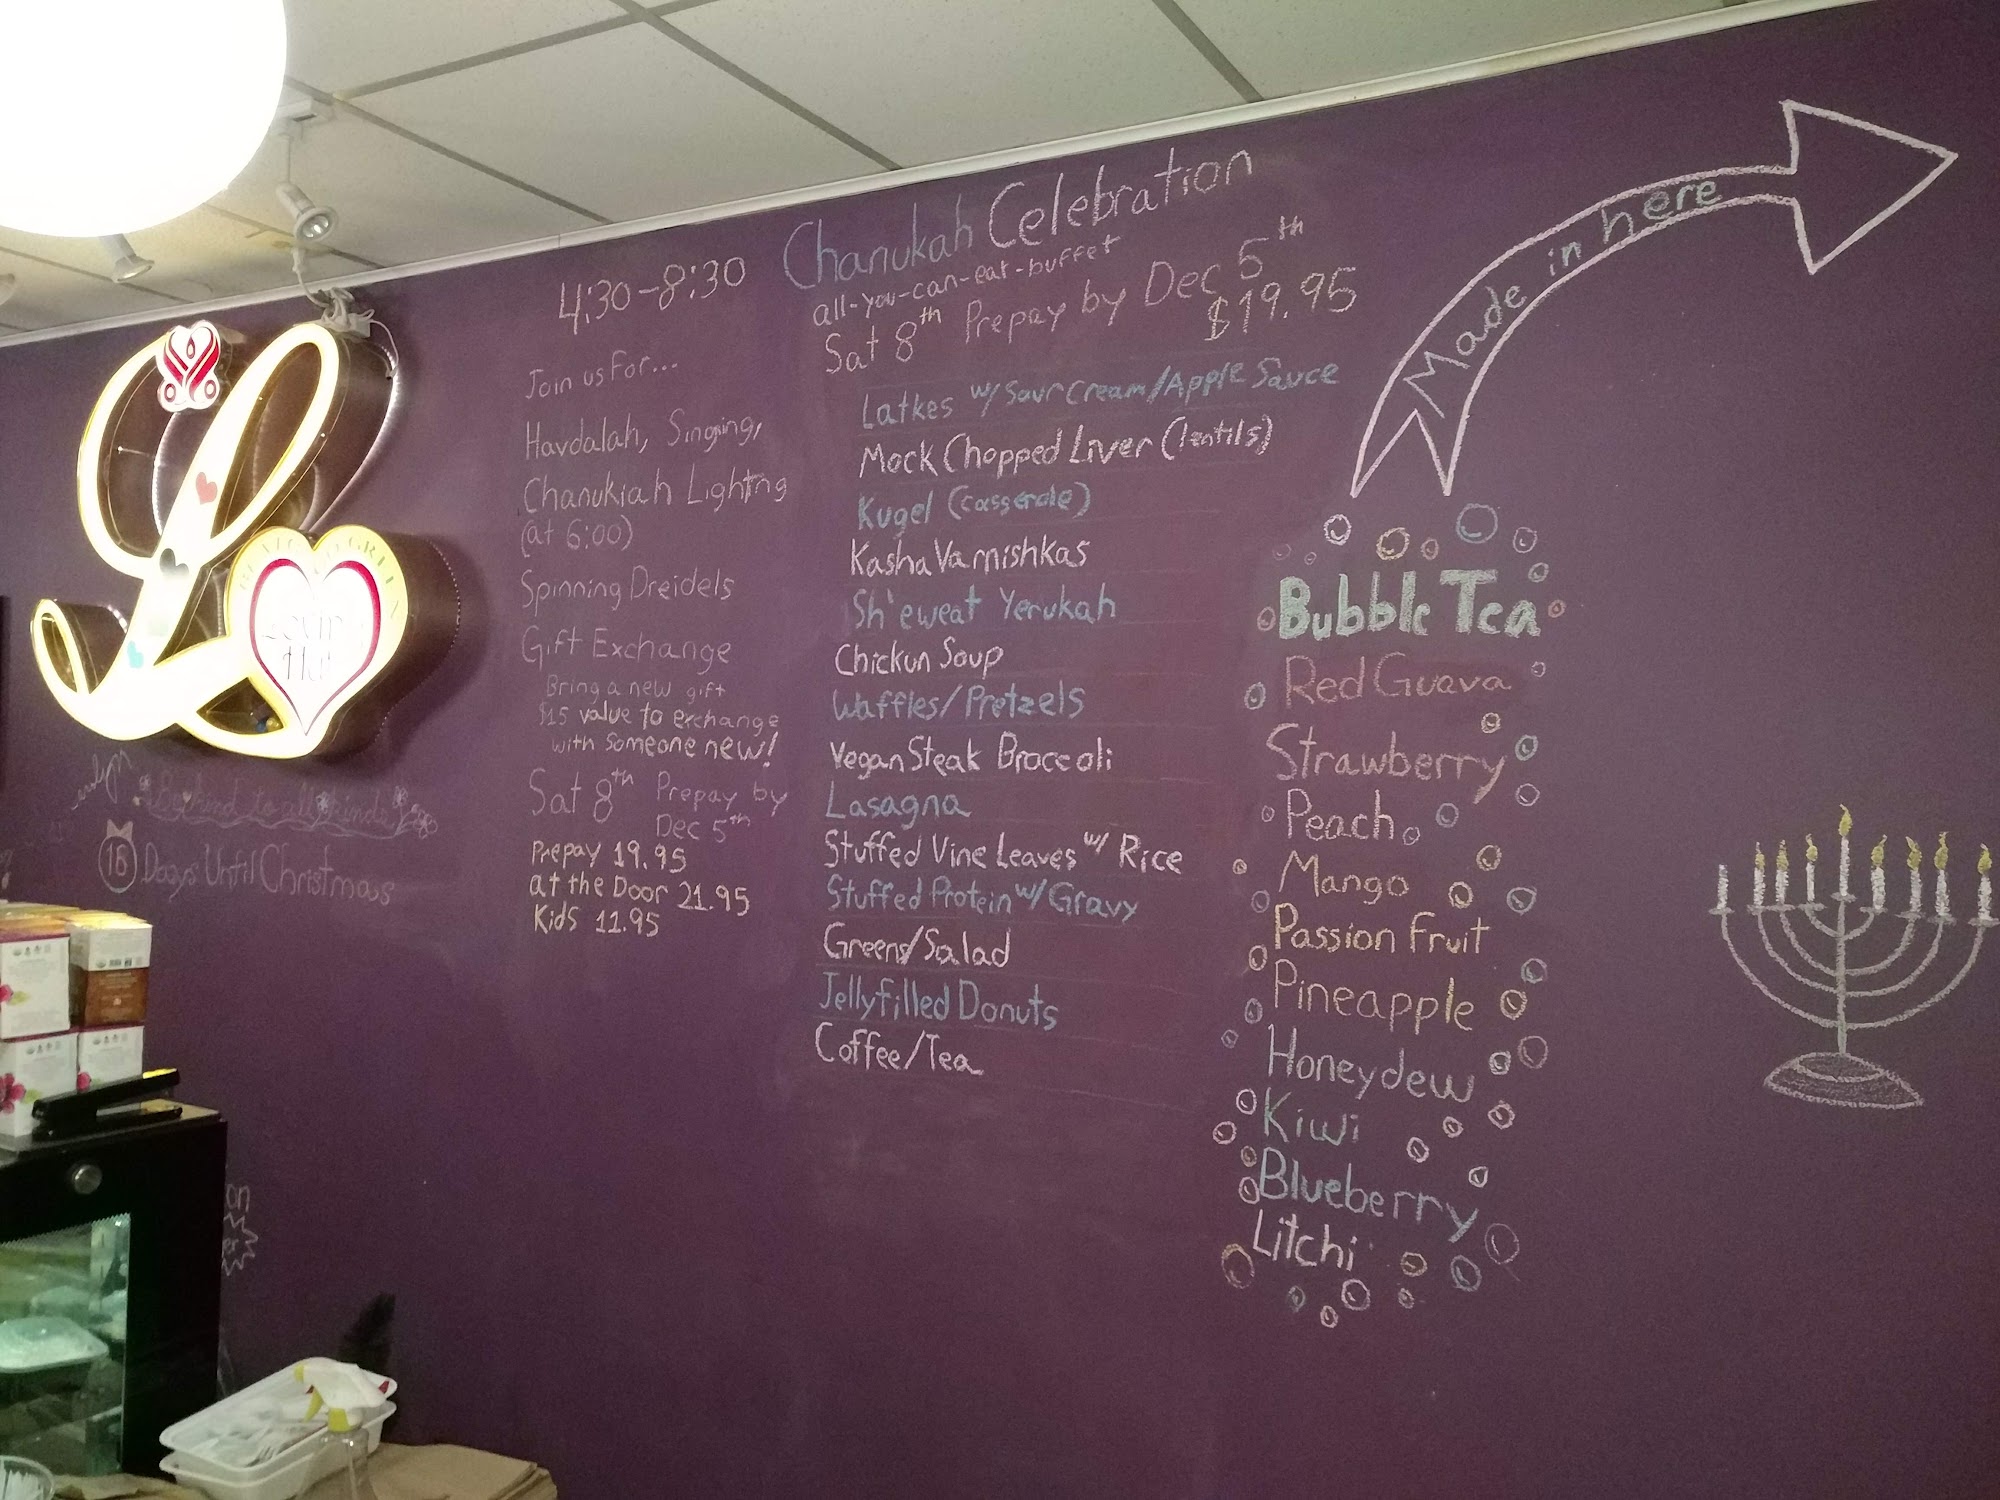 4:30-8:30
Join us For...
Havdalah, Singing,
Chanukiah Lighting
(at 6:00)
Spinning Dreidels
Gift Exchange
Bring a new gift
$15 value to exchange
with someone new!
Sat 8th Prepay by
Dec 5th
Prepay 19.95
at the Door 21.95
Kids 11.95
Chanukah Celebration
all-you-can-eat-buffet
Sat 8th Prepay by Dec 5th
$19.95
Latkes w/ Sour Cream/Apple Sauce
Mock Chopped Liver (lentils)
Kugel (casserole)
Kasha Varnishkas
Sh'eweat Yerukah
Chickun Soup
Waffles/Pretzels
Vegan Steak Broccoli
Lasagna
Stuffed Vine Leaves w/ Rice
Stuffed Protein w/ Gravy
Greens/Salad
Jellyfilled Donuts
Coffee/Tea
Made in here
Bubble Tea
Red Guava
Strawberry
Peach
Mango
Passion Fruit
Pineapple
Honeydew
Kiwi
Blueberry
Litchi
L
Lovin
Hut
Be kind to all kinds
18 Days Until Christmas